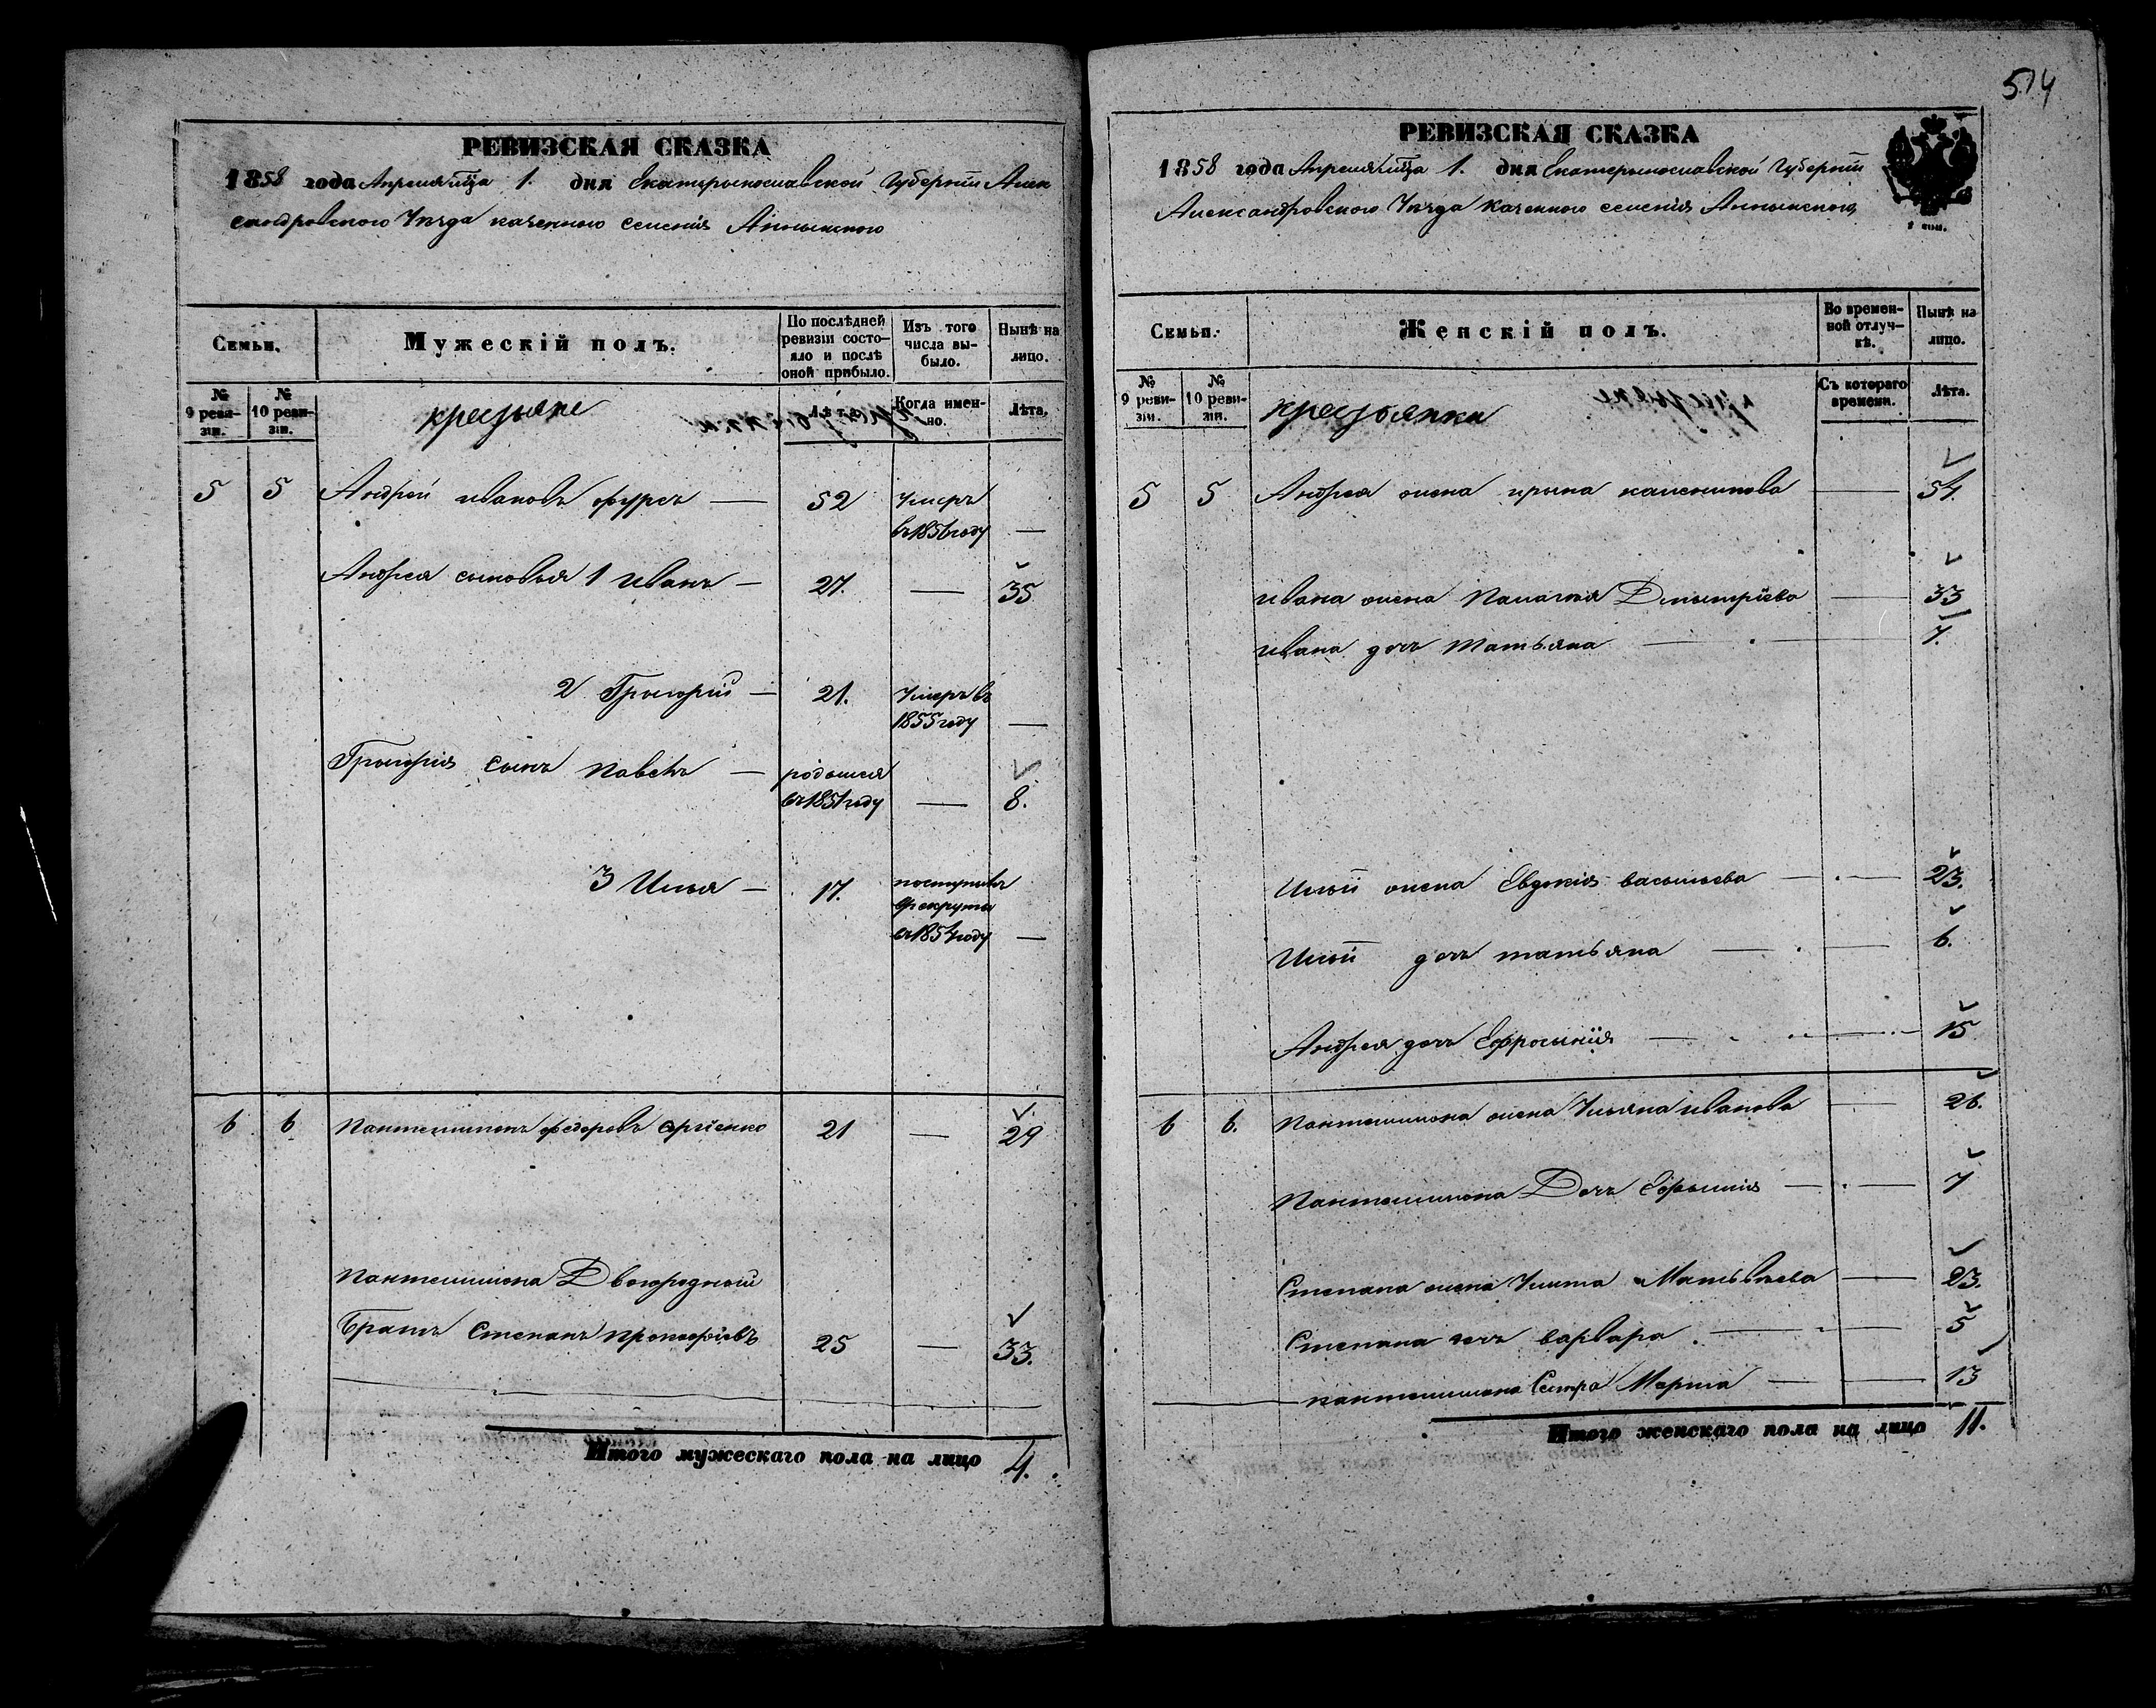 РЕВИЗСКАЯ СКАЗКА
1858 года Апреля м̃ца 1. дня Екатерынославской Губернiи Алек
сандровского Уезда казенного селенiя Аннынского
Семьи.
Мужескiй полъ.
По послѣдней ревизiи состояло и послѣ оной прибыло.
Изъ того числа выбыло.
Нынѣ на лицо.
№ 9 ревизiи.
№ 10 ревизiи.
крестьяне
Лѣта.
Когда именно.
Лѣта.
5 5 Андрей ивановъ фурсъ — 52 Умеръ
въ 1856 году —
Андрея сыновья 1 иванъ — 27. — 35
2 Григорiй — 21. Умеръ въ
1855 году —
Григорiя сынъ павелъ — родылся
въ 1851 году — 8.
3 Илья — 17. поступилъ
в рекруты
въ 1854 году —
6 6 Пантелимонъ федоровъ сргiенко 21 — 29
Пантелимона Двоюродный
Братъ Степанъ прокофiевъ 25 — 33.
Итого мужескаго пола на лицо 4.
514
РЕВИЗСКАЯ СКАЗКА
1858 года Апреля м̃ца 1. дня Екатерынославской Губернiи
Александровского Уезда казенного селенiя Аннынского
Семьи.
Женскiй полъ.
Во временной отлучкѣ.
Нынѣ на лицо.
№ 9 ревизiи.
№ 10 ревизiи.
крестьянки
Съ котораго времени.
Лѣта.
5 5 Андрея жена ирына каленикова — 54.
ивана жена Палагея Дмытрiева — 33
ивана дочъ татьяна — 7.
Ильи жена Евдокiя васыльева — 23.
Ильи дочъ татьяна — 6.
Андрея дочъ Ефросынiя — 15
6 6. Пантелимона жена Ульяна иванова — 26.
Пантелимона Дочъ Ефимия — 7
Степана жена Улита Матьвѣева — 23.
Степана дочъ варвара — 5
пантелимона Сестра Марта — 13
Итого женскаго пола на лицо 11.